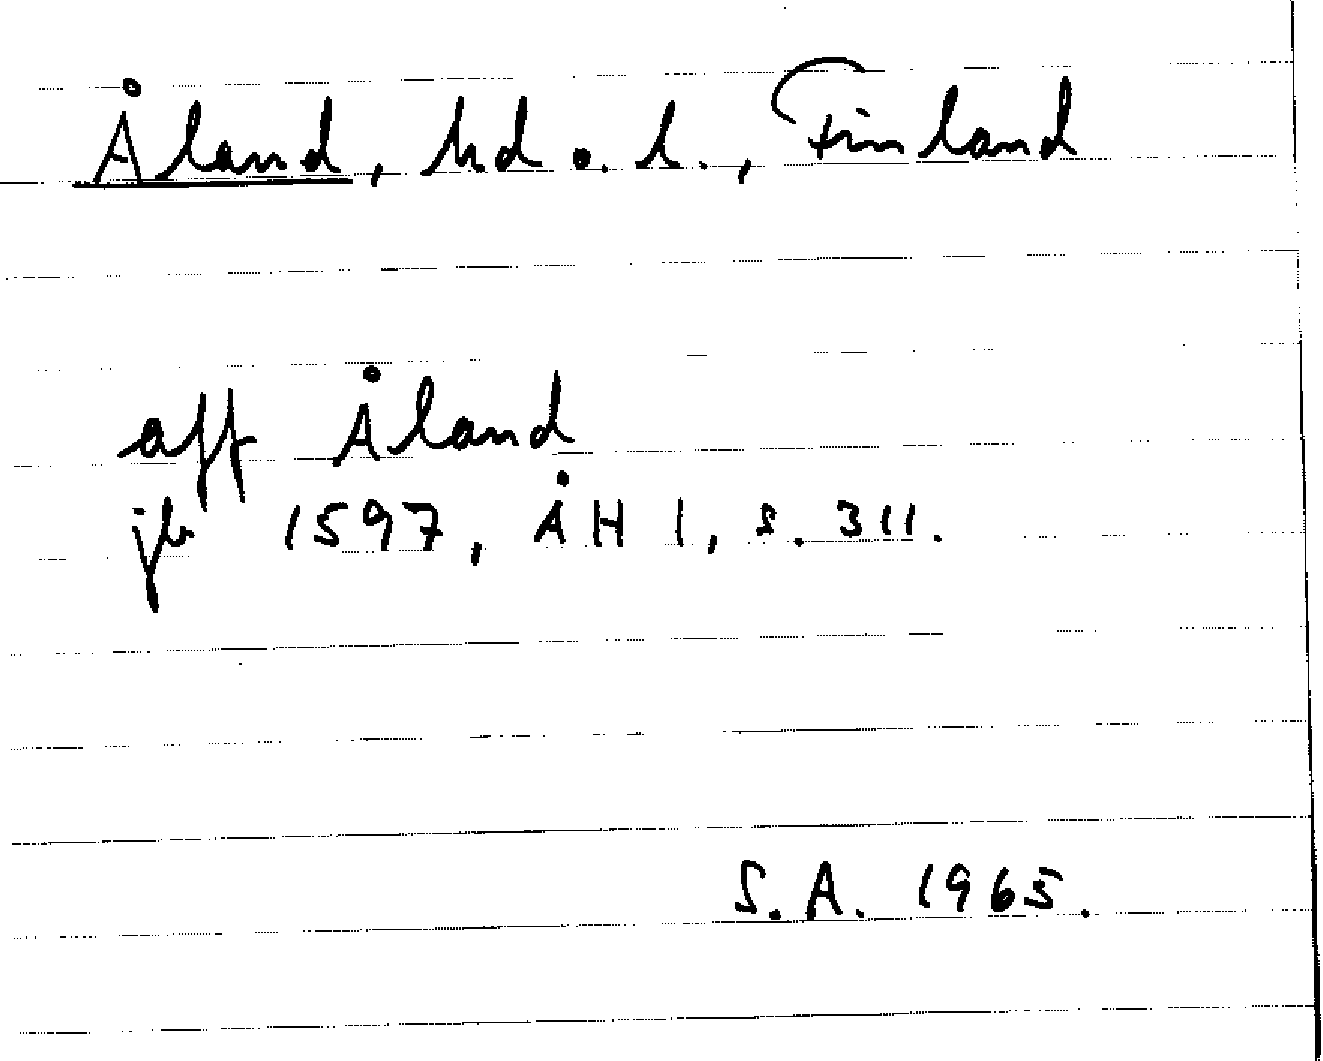 Åland, hd o. l., Finland
aff Åland
jb 1597, ÅH 1, s. 311.
S.A. 1965.